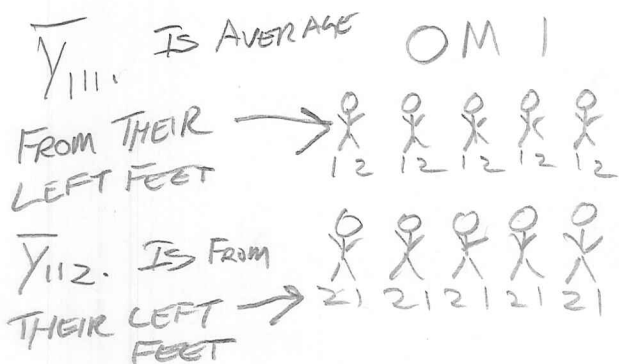 Ȳ111. IS AVERAGE
O M I
FROM THEIR
LEFT FEET
12 12 12 12 12
Ȳ112. IS FROM
THEIR LEFT
FEET
21 21 21 21 21